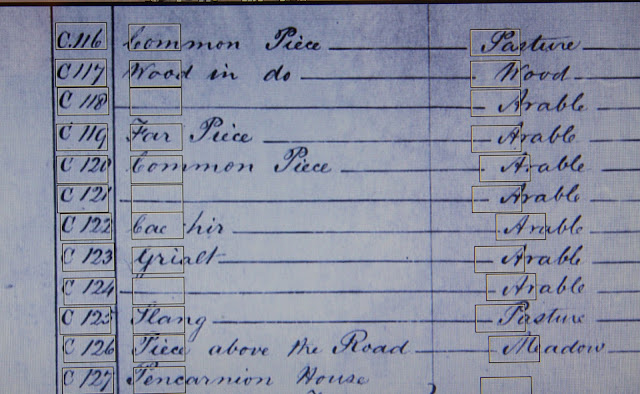 C.116 Common Piece Pasture
C 117 Wood in do Wood
C 118 Arable
C 119 Far Piece Arable
C 120 Common Piece Arable
C 121 Arable
C 122 Cae hir Arable
C 123 Arable
C 124 " Arable
C 125 Slang Pasture
C 126 Piece above the Road Meadow
C 127 Pencarnion House